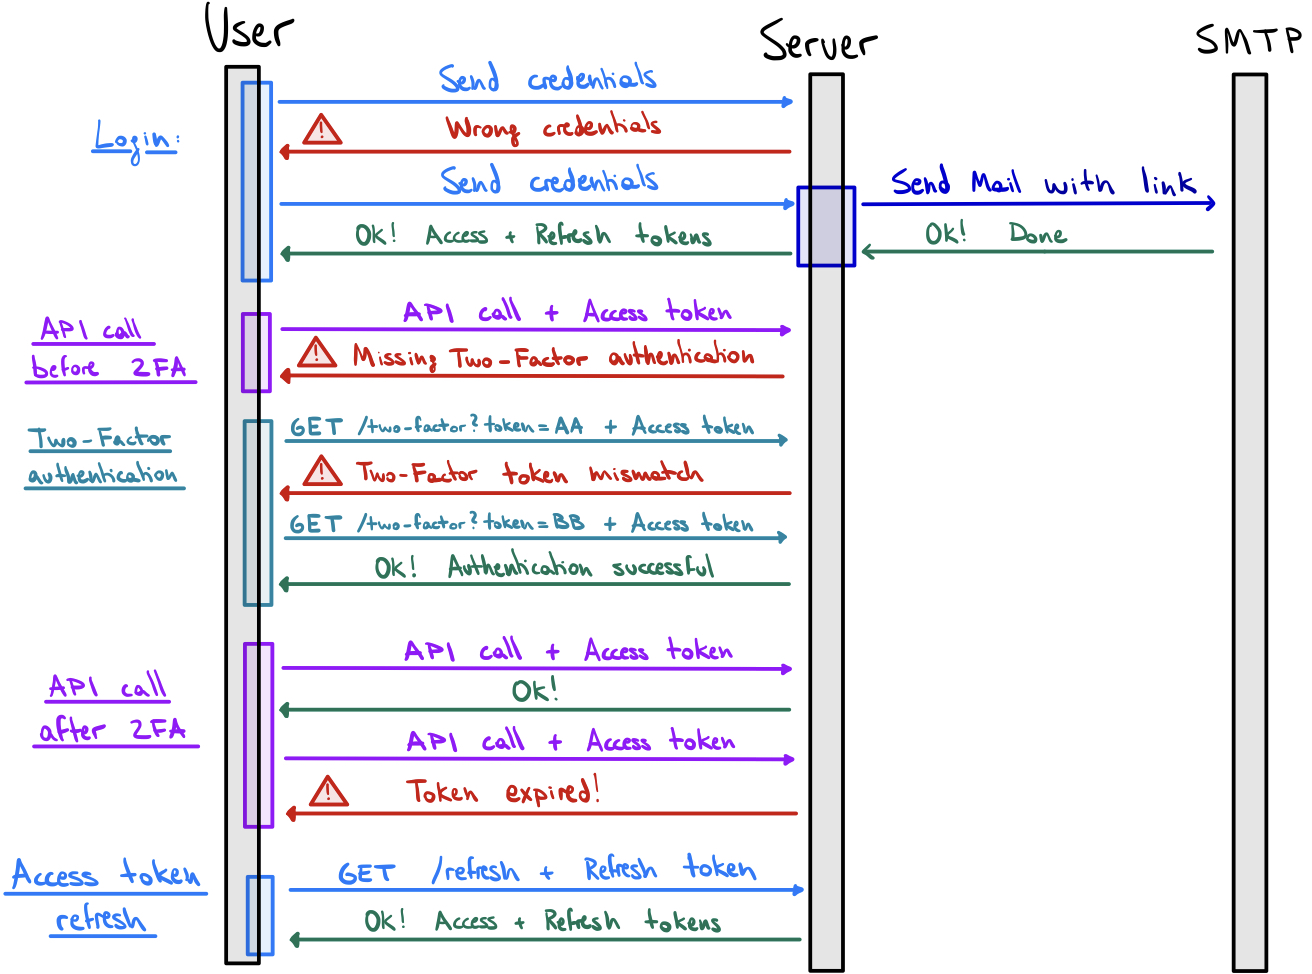 User
Server
SMTP
Login:
Send credentials
! Wrong credentials
Send credentials
Send Mail with link
Ok! Access + Refresh tokens
Ok! Done
API call
before 2FA
API call + Access token
! Missing Two-Factor authentication
Two-Factor
authentication
GET /two-factor?token=AA + Access token
! Two-Factor token mismatch
GET /two-factor?token=BB + Access token
Ok! Authentication successful
API call
after 2FA
API call + Access token
Ok!
API call + Access token
! Token expired!
Access token
refresh
GET /refresh + Refresh token
Ok! Access + Refresh tokens